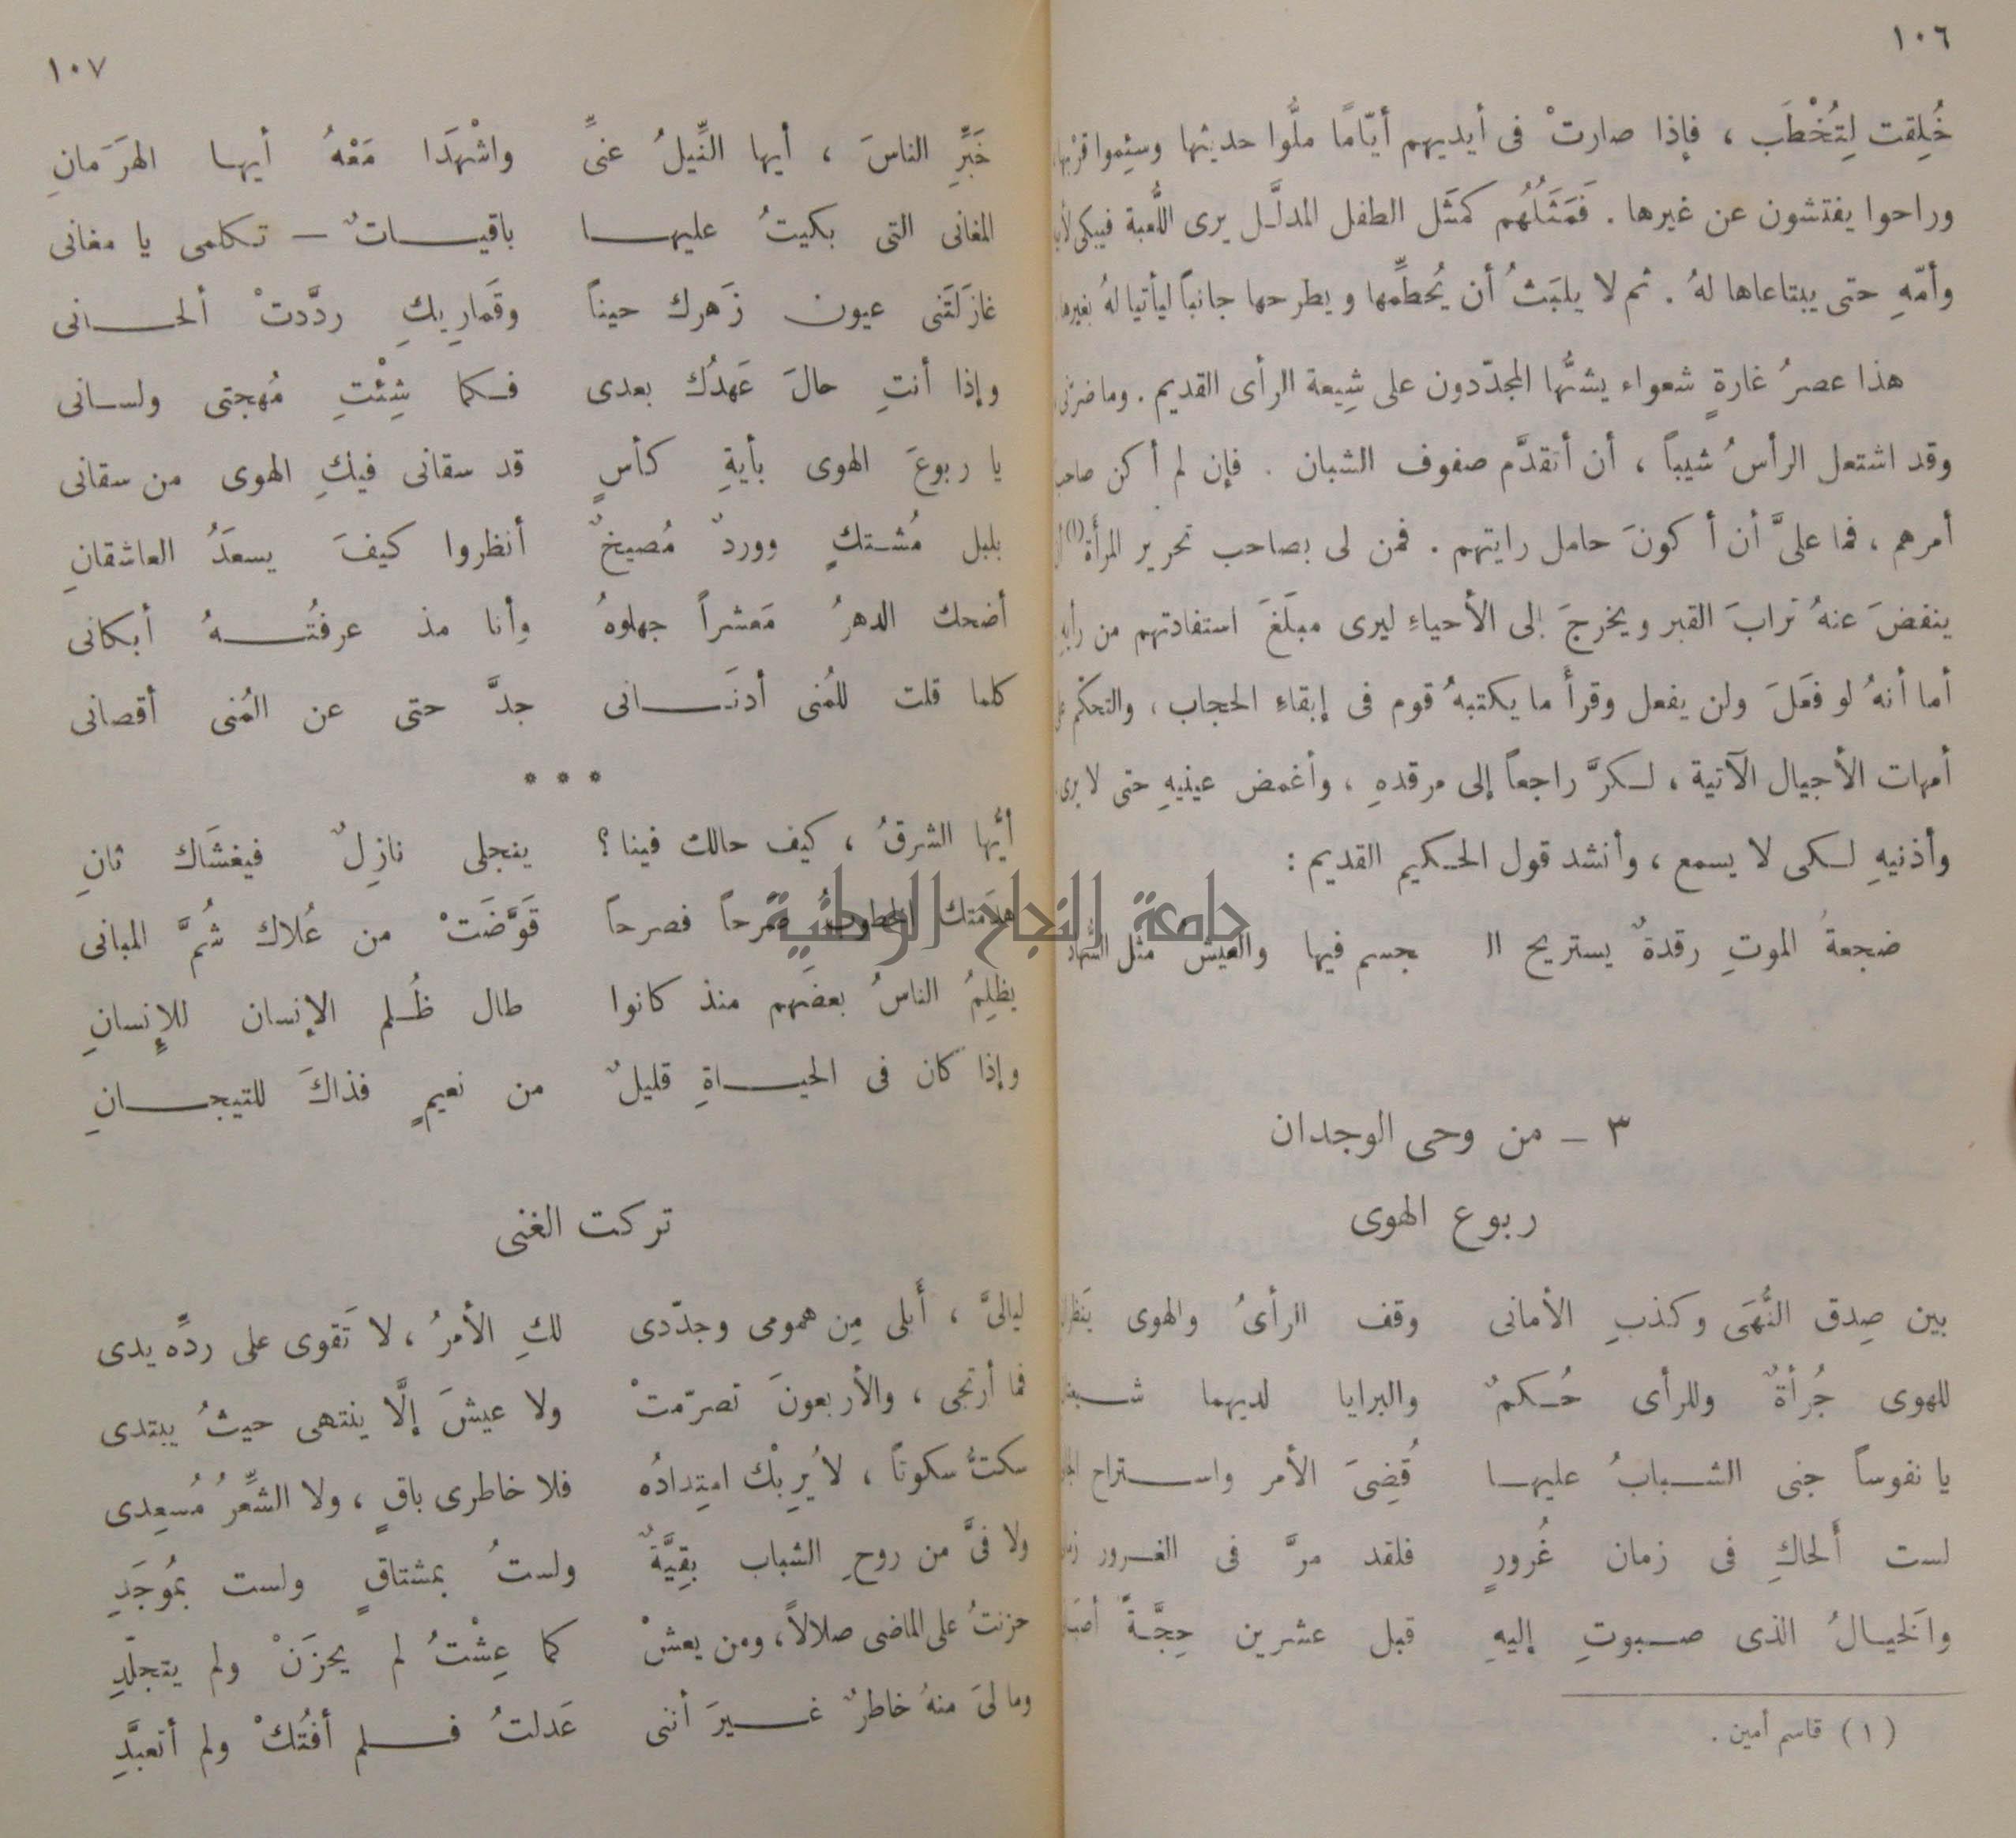 ١٠٦
خُلِقت لِتُخْطَب ، فإذا صارتْ فى أيديهم أيّامًا ملُّوا حديثها وسئِموا قربها
وراحوا يفتشون عن غيرها . فَمَثَلُهُم كمَثَل الطفل المدلَّل يرى اللُّعبة فيبكى
وأمّهِ حتى يبتاعاها لهُ . ثم لا يلبَثُ أن يُحطِّمها ويطرحها جانباً ليأتيا لهُ بغيرها
هذا عصرُ غارةٍ شعواء يشنُّها المجدّدون على شِيعة الرأى القديم . وما ضرّنى
وقد اشتعل الرأسُ شيباً ، أن أتقدَّم صفوف الشبان . فإن لم أكن صاحب
أمرهم ، فما علىَّ أن أكونَ حامل رايتهم . فمن لى بصاحب تحرير المرأة (١)
ينفضَ عنهُ ترابَ القبر ويخرجَ إلى الأحياءِ ليرى مبلَغَ استفادتهم من رأيهِ
أما أنهُ لو فعَلَ ولن يفعل وقرأ ما يكتبهُ قوم فى إبقاءِ الحجاب ، والتحكّم
أمهات الأجيال الآتية ، لكرَّ راجعاً إلى مرقدهِ ، وأغمض عينيهِ حتى لا يرى
وأذنيهِ لكى لا يسمع ، وأنشد قول الحكيم القديم :
ضجعةُ الموتِ رقدةٌ يستريح الـ جسم فيها والعيش مثل السُّهاد
٣ – من وحى الوجدان
ربوع الهوى
بين صِدق النُّهَى وكذبِ الأمانى وقف الرأىُ والهوى يَنظران
للهوى جُرأةٌ وللرأى حُكمٌ والبرايا لديهما
يا نفوساً جنى الشبابُ عليها قُضِىَ الأمر واستراح
لست ألحاكِ فى زمان غُرورٍ فلقد مرَّ فى الغرور
والخيالُ الذى صبوتِ إليهِ قبل عشرين حِجَّةً
(١) قاسم أمين .
١٠٧
خَبِّرِ الناسَ ، أيها النِّيلُ عنىِّ واشْهدَا مَعْهُ أيها الهرَمانِ
المغانى التى بكيتُ عليها باقياتٌ – تكلمى يا مغانى
غازَلَتَنى عيون زَهرك حيناً وقَمارِيكِ ردَّدتْ ألحانى
وإذا أنتِ حالَ عَهدُك بعدى فكما شِئْتِ مُهجتى ولسانى
يا ربوعَ الهوى بأيةِ كأسٍ قد سقانى فيكِ الهوى من سقانى
بلبل مُشتكٍ ووردٌ مُصيخٌ أنظروا كيفَ يسعَدُ العاشقانِ
أضحك الدهرُ مَعشراً جهلوهُ وأنا مذ عرفتُهُ أبكانى
كلما قلت للمُنى أدنَانى جدَّ حتى عن المُنى أقصانى
* * *
أيُّها الشرقُ ، كيف حالك فينا ؟ ينجلى نازِلٌ فيغشَاك ثانِ
هدَمتك الخطوبُ صَرحاً فصرحاً قَوَّضَتْ من عُلاك شُمَّ المبانى
يظلِمُ الناسُ بعضَهم منذ كانوا طال ظُلم الإنسان للإنسانِ
وإذا كان فى الحياةِ قليلٌ من نعيمٍ فذاكَ للتيجانِ
تركت الغنى
ليالىَّ ، أَبلى مِن همومى وجدّدى لكِ الأمرُ ، لا تَقوى على ردّه يدى
فما أرتجى ، والأربعونَ تصرّمتْ ولا عيشَ إلَّا ينتهى حيثُ يبتدى
سكتُّ سكوتاً ، لا يُرِبْك امتِدادُه فلا خاطرى باقٍ ، ولا الشِّعرُ مُسعِدى
ولا فىَّ من روحِ الشباب بقِيَّةٌ ولستُ بمشتاقٍ ولست بمُوجَدِ
حزنتُ على الماضى ضلالاً ، ومن يعشْ كما عِشْتُ لم يحزَنْ ولم يتجلّدِ
وما لىَ منهُ خاطرٌ غيرَ أننى عَدلتُ فلم أفتُكْ ولم أتعبَّدِ
جامعة النجاح الوطنية